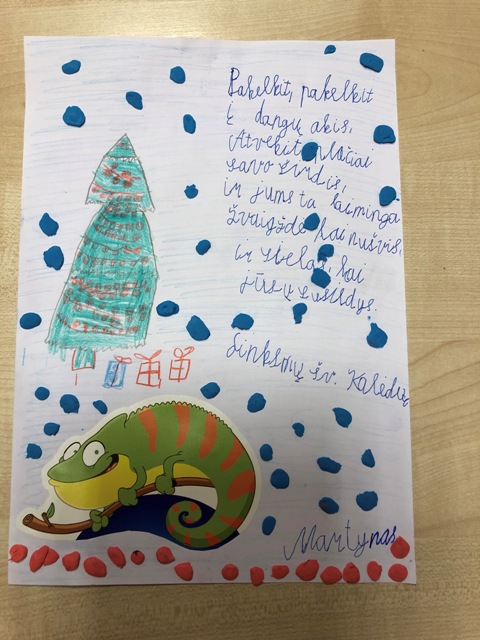 Pakelkit, pakelkit
į dangų akis,
Atverkit plačiai
savo širdis,
ir jums ta laiminga
žvaigždė kai nušvis,
ir viskas, kai
jūsų
Linksmų šv. Kalėdų
Martynas